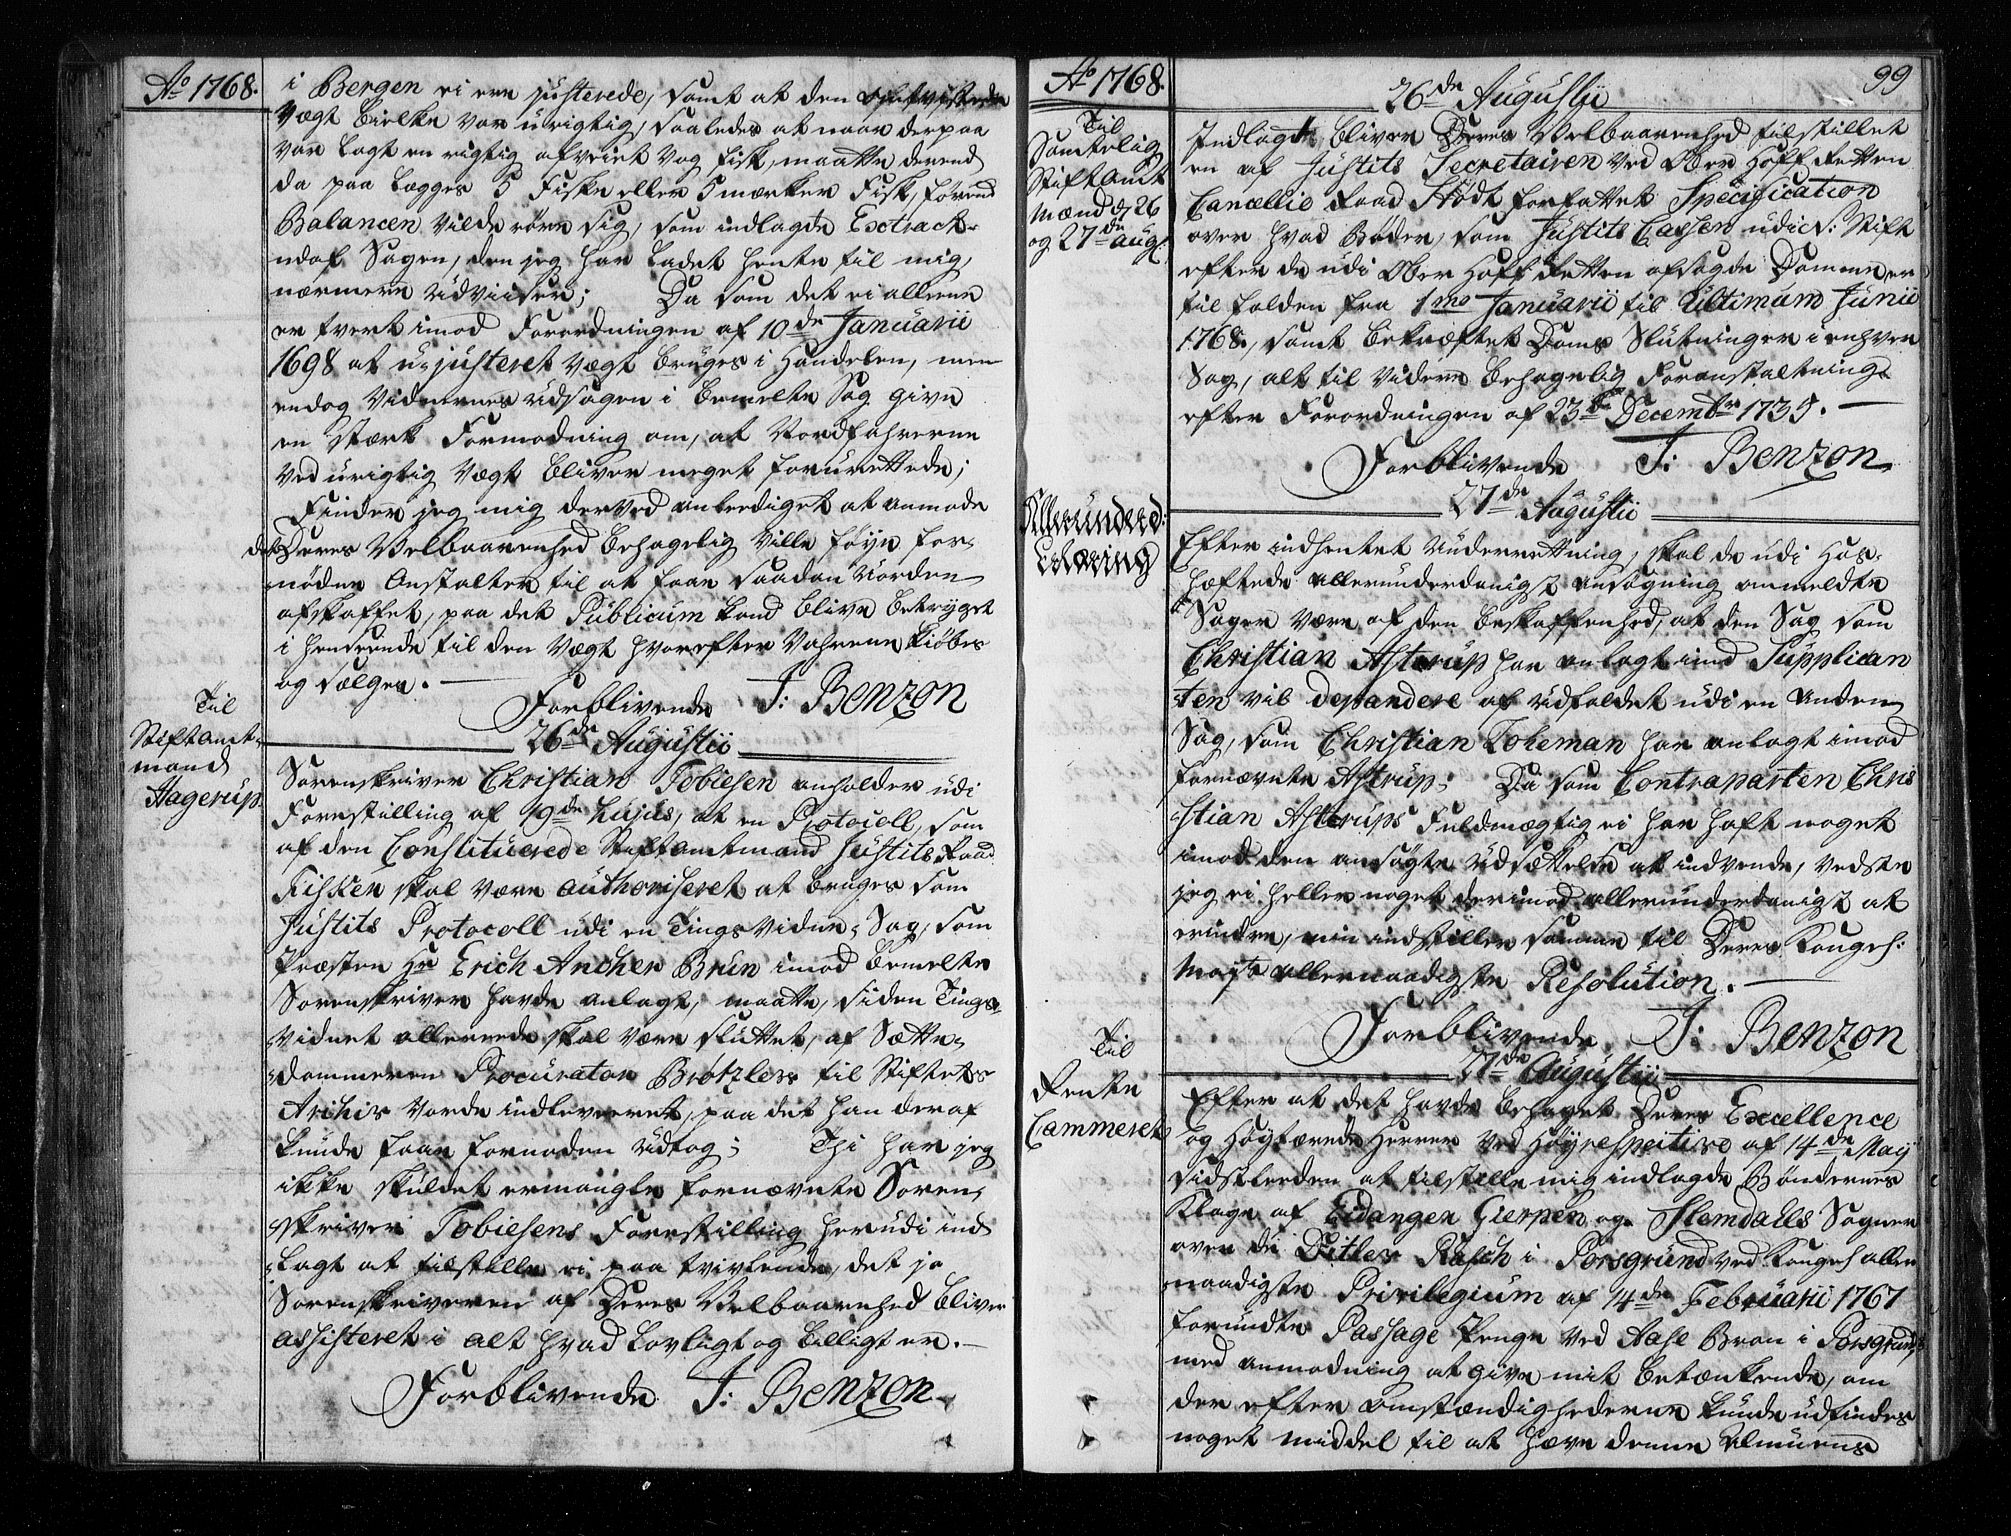 Ao 1768.
i Bergen ei ere justerede, samt at den
Vægt Bielke var urigtig, saaledes at naar derpaa
var lagt en rigtig afveiet Vog Fisk, maatte derend
da paa lægges 5 Fiske eller 5 mærker Fisk, førend
Balancen vilde røre sig, som indlagde Extract
udaf Sagen, den jeg har ladet hente til mig,
nærmere udviiser; Da som det ei alleene
er tvert imod Forordningen af 10de Januarii
1698 at u-justeret Vægt bruges i Handelen, men
endog Vidnernes udsagen i bemelte Sag give
en stærk Formodning om, at Nordfahrerne
ved urigtig Vægt bliver meget forurettede;
Finder jeg mig derved anlediget at anmode
det Deres Velbaarenhed behagelig ville føye for-
nødne Anstalter til at faae saadan Uorden
afskaffet, paa det Publicum kand blive betrygget
i henseende til den Vægt hvorefter Vahrene kiøbes
og sælges.
Forblivende J: Benzon
Til
Stiftamt-
mand
Hagerup.
26de Augustii
Sorenskriver Christian Tobiesen anholder udi
Forestilling af 19de hujus, at en Protocoll, som
af den Constituerede Stiftamtmand Justits Raad
Risken skal være authoriseret at bruges som
Justits Protocoll udi en Tingsvidne-Sag, som
Præsten Hr Erich Ancher Brun imod bemelte
Sorenskriver havde anlagt, maatte, siden Tings-
vidnet allereede skal være sluttet, af Sætte-
dommeren Procurator Brøtzler til Stiftets
Archiv vorde indleveret, paa det han deraf
kunde faae fornøden Udtog; Thi har jeg
ikke skuldet ermangle fornævnte Soren-
skriver Tobiesens Forestilling herudi ind-
lagt at tilstille ei paa tvivlende, det jo
Sorenskriveren af Deres Velbaarenhed bliver
assisteret i alt hvad Lovligt og billigt er.
Forblivende J: Benzon
Ao 1768.
99
Til
Samtelig
Stiftamt
Mænd d. 26
og 27de Aug.
26de Augustii
Indlagt bliver Deres Velbaarenhed tilstillet
en af Justits Secretairen ved Ober Hoff Retten
Cancellie Raad Stødt forfattet Specification
over hvad Bøder, som Justits Cassen udi d: Stift
efter de udi Ober Hoff Retten afsagde Domme, er
tilfalden fra 1mo Januarii til Ultimum Junii
1768, samt bekræftet Doms Slutninger i enhver
Sag, alt til videre behagelig Foranstaltning
efter Forordningen af 23de Decembr 1735.
Forblivende J: Benzon
Allerunderd:
Erklæring
27de Augustii
Efter indhentet Underretning, skal de udi Hos-
hæftede allerunderdanigst Ansøgning anmeldte
Sager være af den beskaffenhed, at den Sag som
Christian Astrup har anlagt imd Supplican
ten vil dependere af udfaldet udi en anden
Sag, som Christian Lohman har anlagt imod
fornævnte Astrup; Da som Contraparten Chri
stian Astrups Fuldmægtig ei har haft noget
imod den ansøgte udsættelse at indvende, vedste
jeg ei heller noget derimod allerunderdanigst at
erindre, men indstiller samme til Deres Kongel:
Mayts allernaadigste Resolution.
Forblivende J: Benzon
Til
Rente
Cammeret
27de Augustii
Efter at det havde behaget Deres Excellence
og Høytærede Herrer ved Høyrespective af 14de May
sidstleeden at tilstille mig indlagde Bøndernes
Klage af Eidanger Gierpen og Slemdalls Sogner
over de Ditler Rasch i Porsgrund ved Kongel: aller
naadigste Privilegium af 14de Februarii 1767
forundte Passage Penge ved Aase Broe i Porsgrund,
med anmodning at give mit betænkende, om
der efter omstændighederne kunde udfindes
noget middel til at hæve denne Almuens